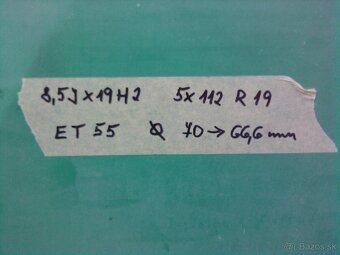 8,5J x 19 H2 5x112 R19
ET 55 Ø 70 → 66,6 mm
© Bazos.sk